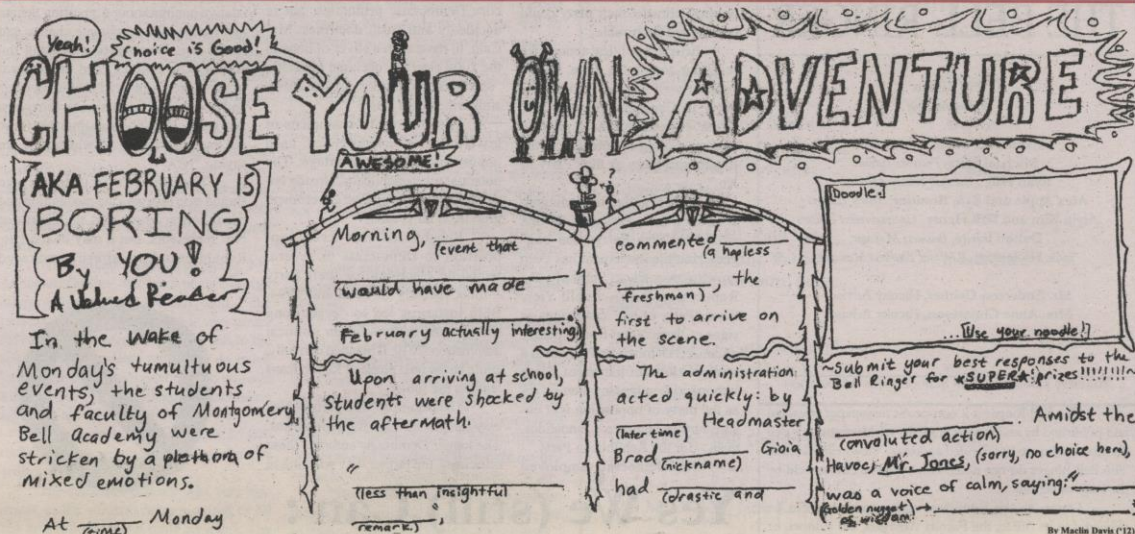 Yeah!
Choice is Good!
CHOOSE YOUR OWN ADVENTURE
AWESOME!
AKA FEBRUARY IS
BORING
By YOU!
A Valued Reader
In the wake of
Monday's tumultuous
events, the students
and faculty of Montgomery
Bell Academy were
stricken by a plethora of
mixed emotions.
At (time) Monday
Morning, (event that
would have made
February actually interesting.)
Upon arriving at school,
students were shocked by
the aftermath.
"
(less than insightful
remark.),
commented (a hapless
freshman), the
first to arrive on
the scene.
The administration
acted quickly: by
(later time) Headmaster
Brad (nickname) Gioia
had (drastic and
?
Doodle:
...Use your noodle!
~Submit your best responses to the
Bell Ringer for *SUPER* prizes!!!!!!!!~
(convoluted action). Amidst the
Havoc, Mr. Jones, (sorry, no choice here),
was a voice of calm, saying: "
(Golden nugget of wisdom) →
By Maclin Davis ('12)